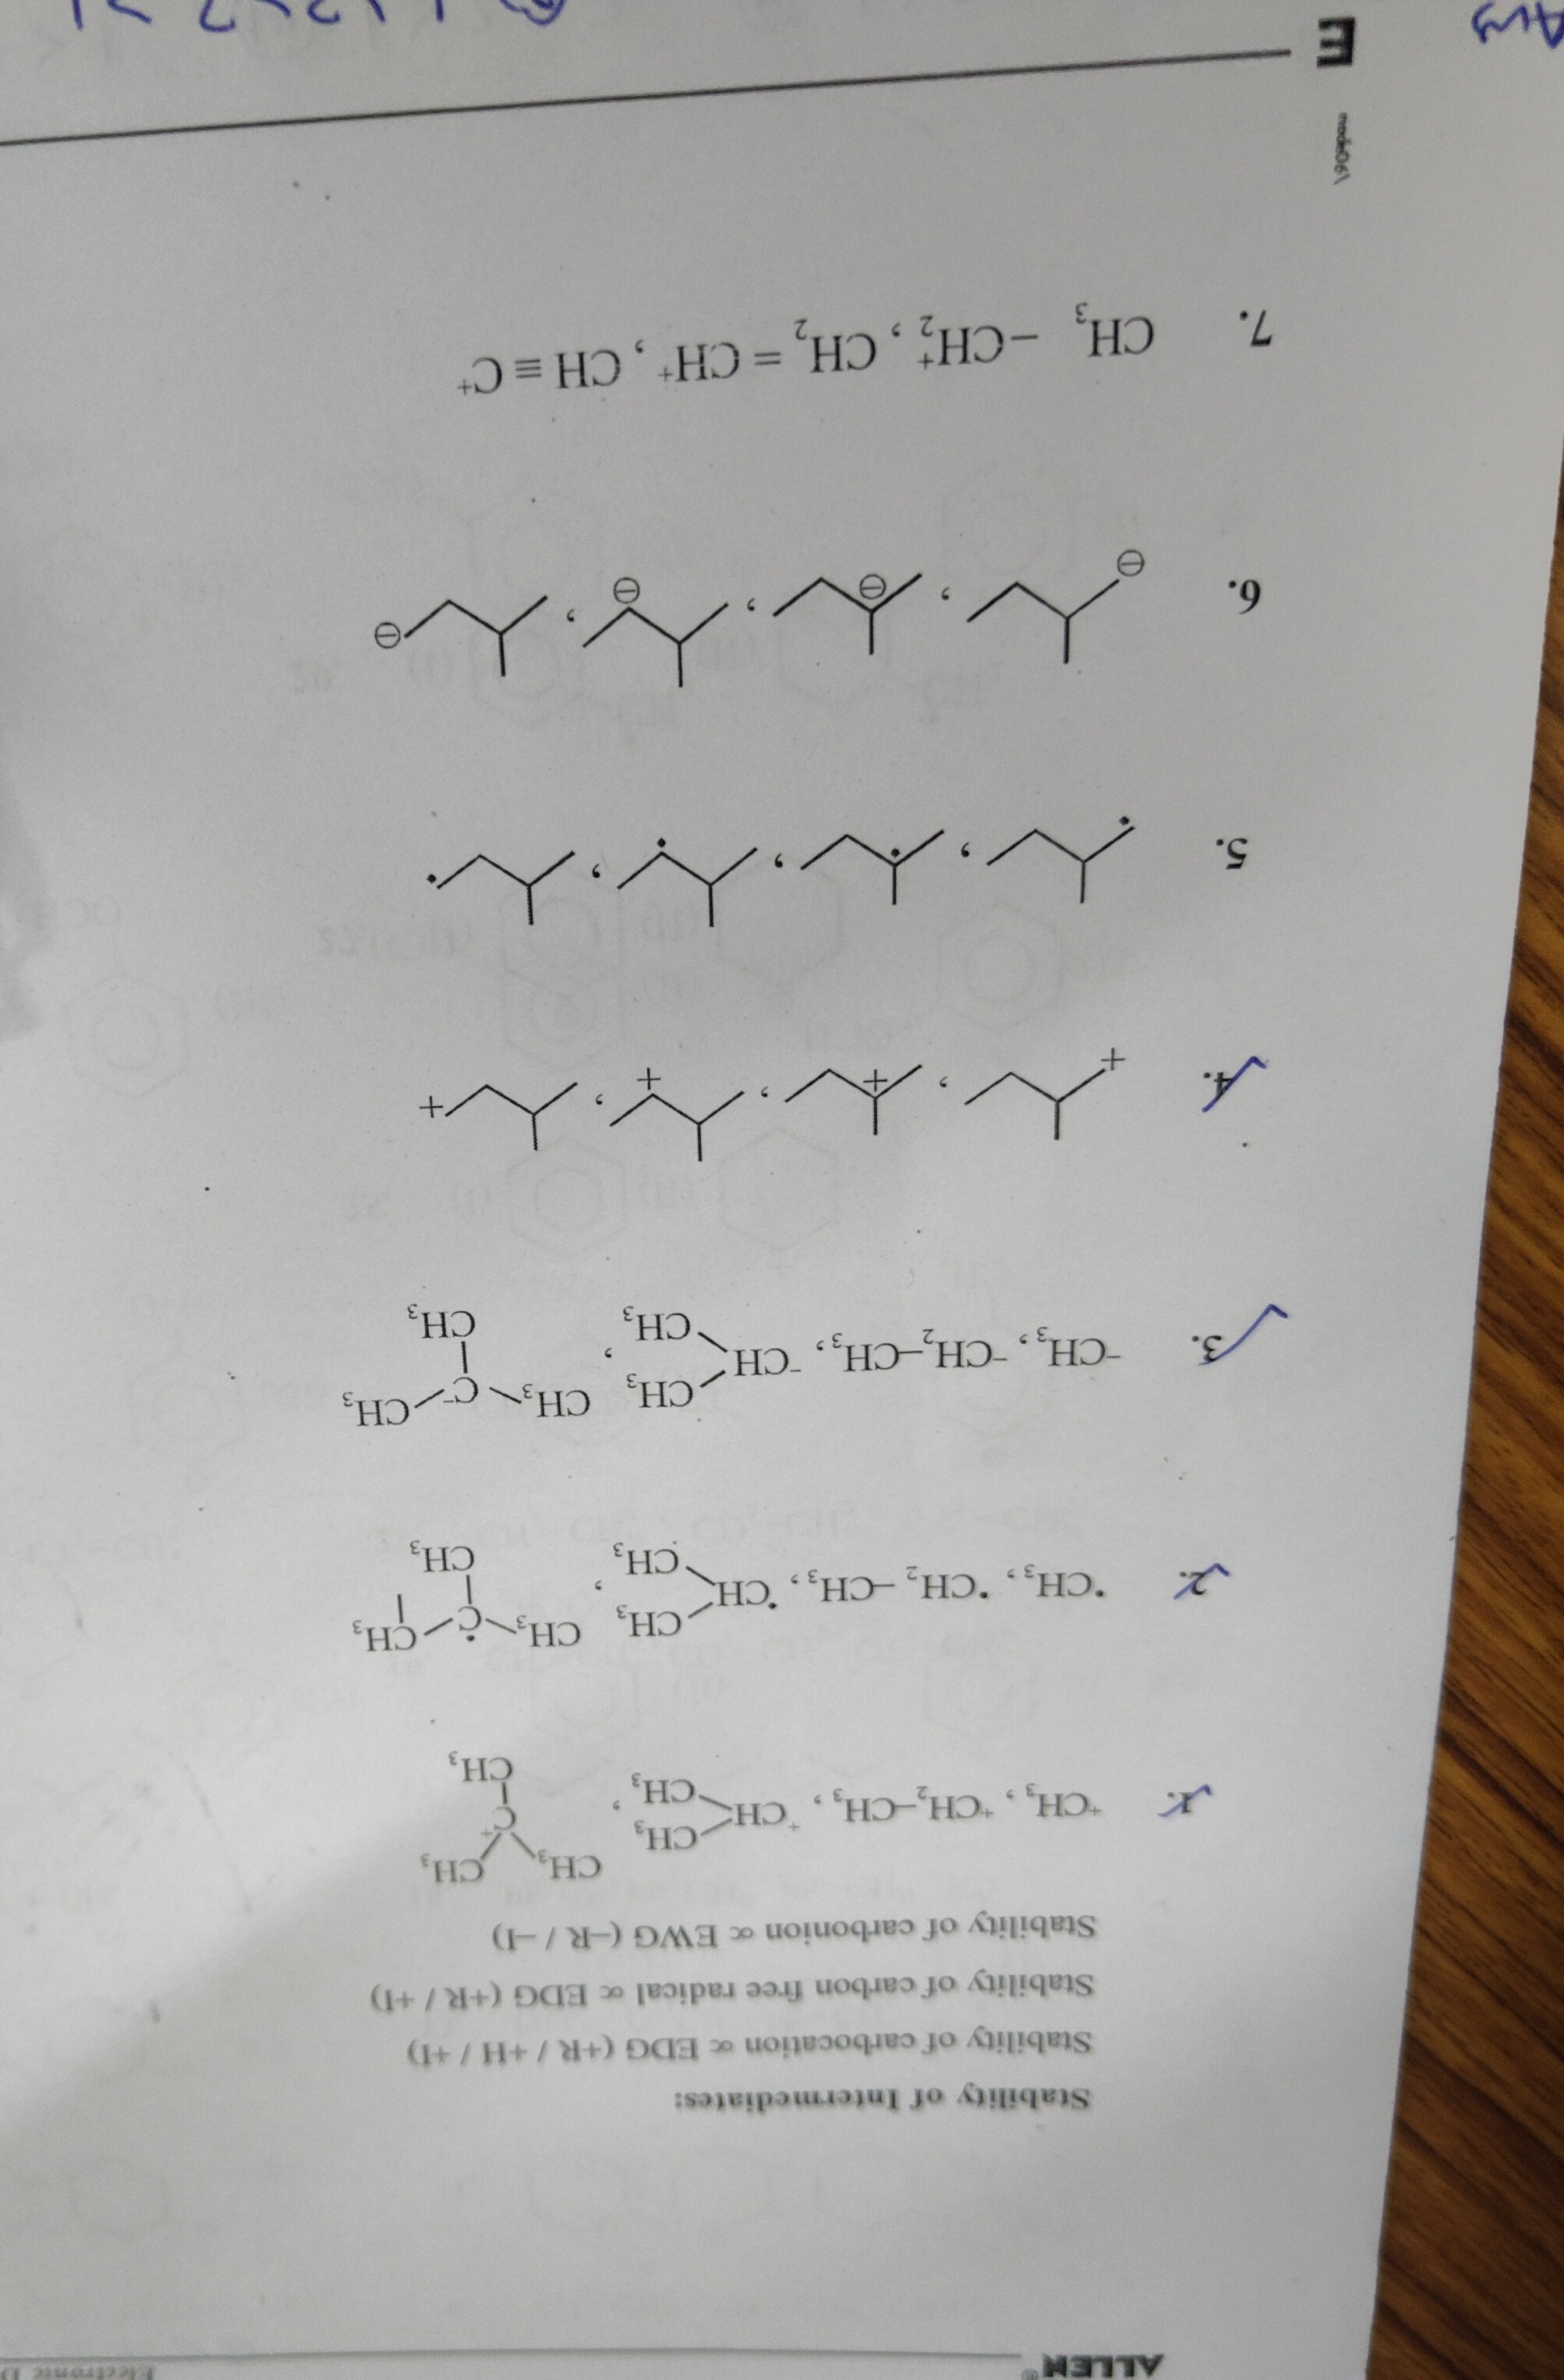 ALLEN®
Stability of Intermediates:
Stability of carbocation ∝ EDG (+R / +H / +I)
Stability of carbon free radical ∝ EDG (+R / +I)
Stability of carbonion ∝ EWG (–R / –I)
1. ⁺CH₃ , ⁺CH₂–CH₃ , ⁺CH CH₃ CH₃ , CH₃ CH₃ C⁺ CH₃
2. •CH₃ , •CH₂ –CH₃ , •CH CH₃ CH₃ , CH₃ Ċ CH₃ CH₃
3. ⁻CH₃ , ⁻CH₂–CH₃ , ⁻CH CH₃ CH₃ , CH₃ C⁻ CH₃ CH₃
4. + , + , + , +
5. • , • , • , •
6. ⊖ , ⊖ , ⊖ , ⊖
7. CH₃ –CH₂⁺ , CH₂ = CH⁺ , CH ≡ C⁺
E
Ans